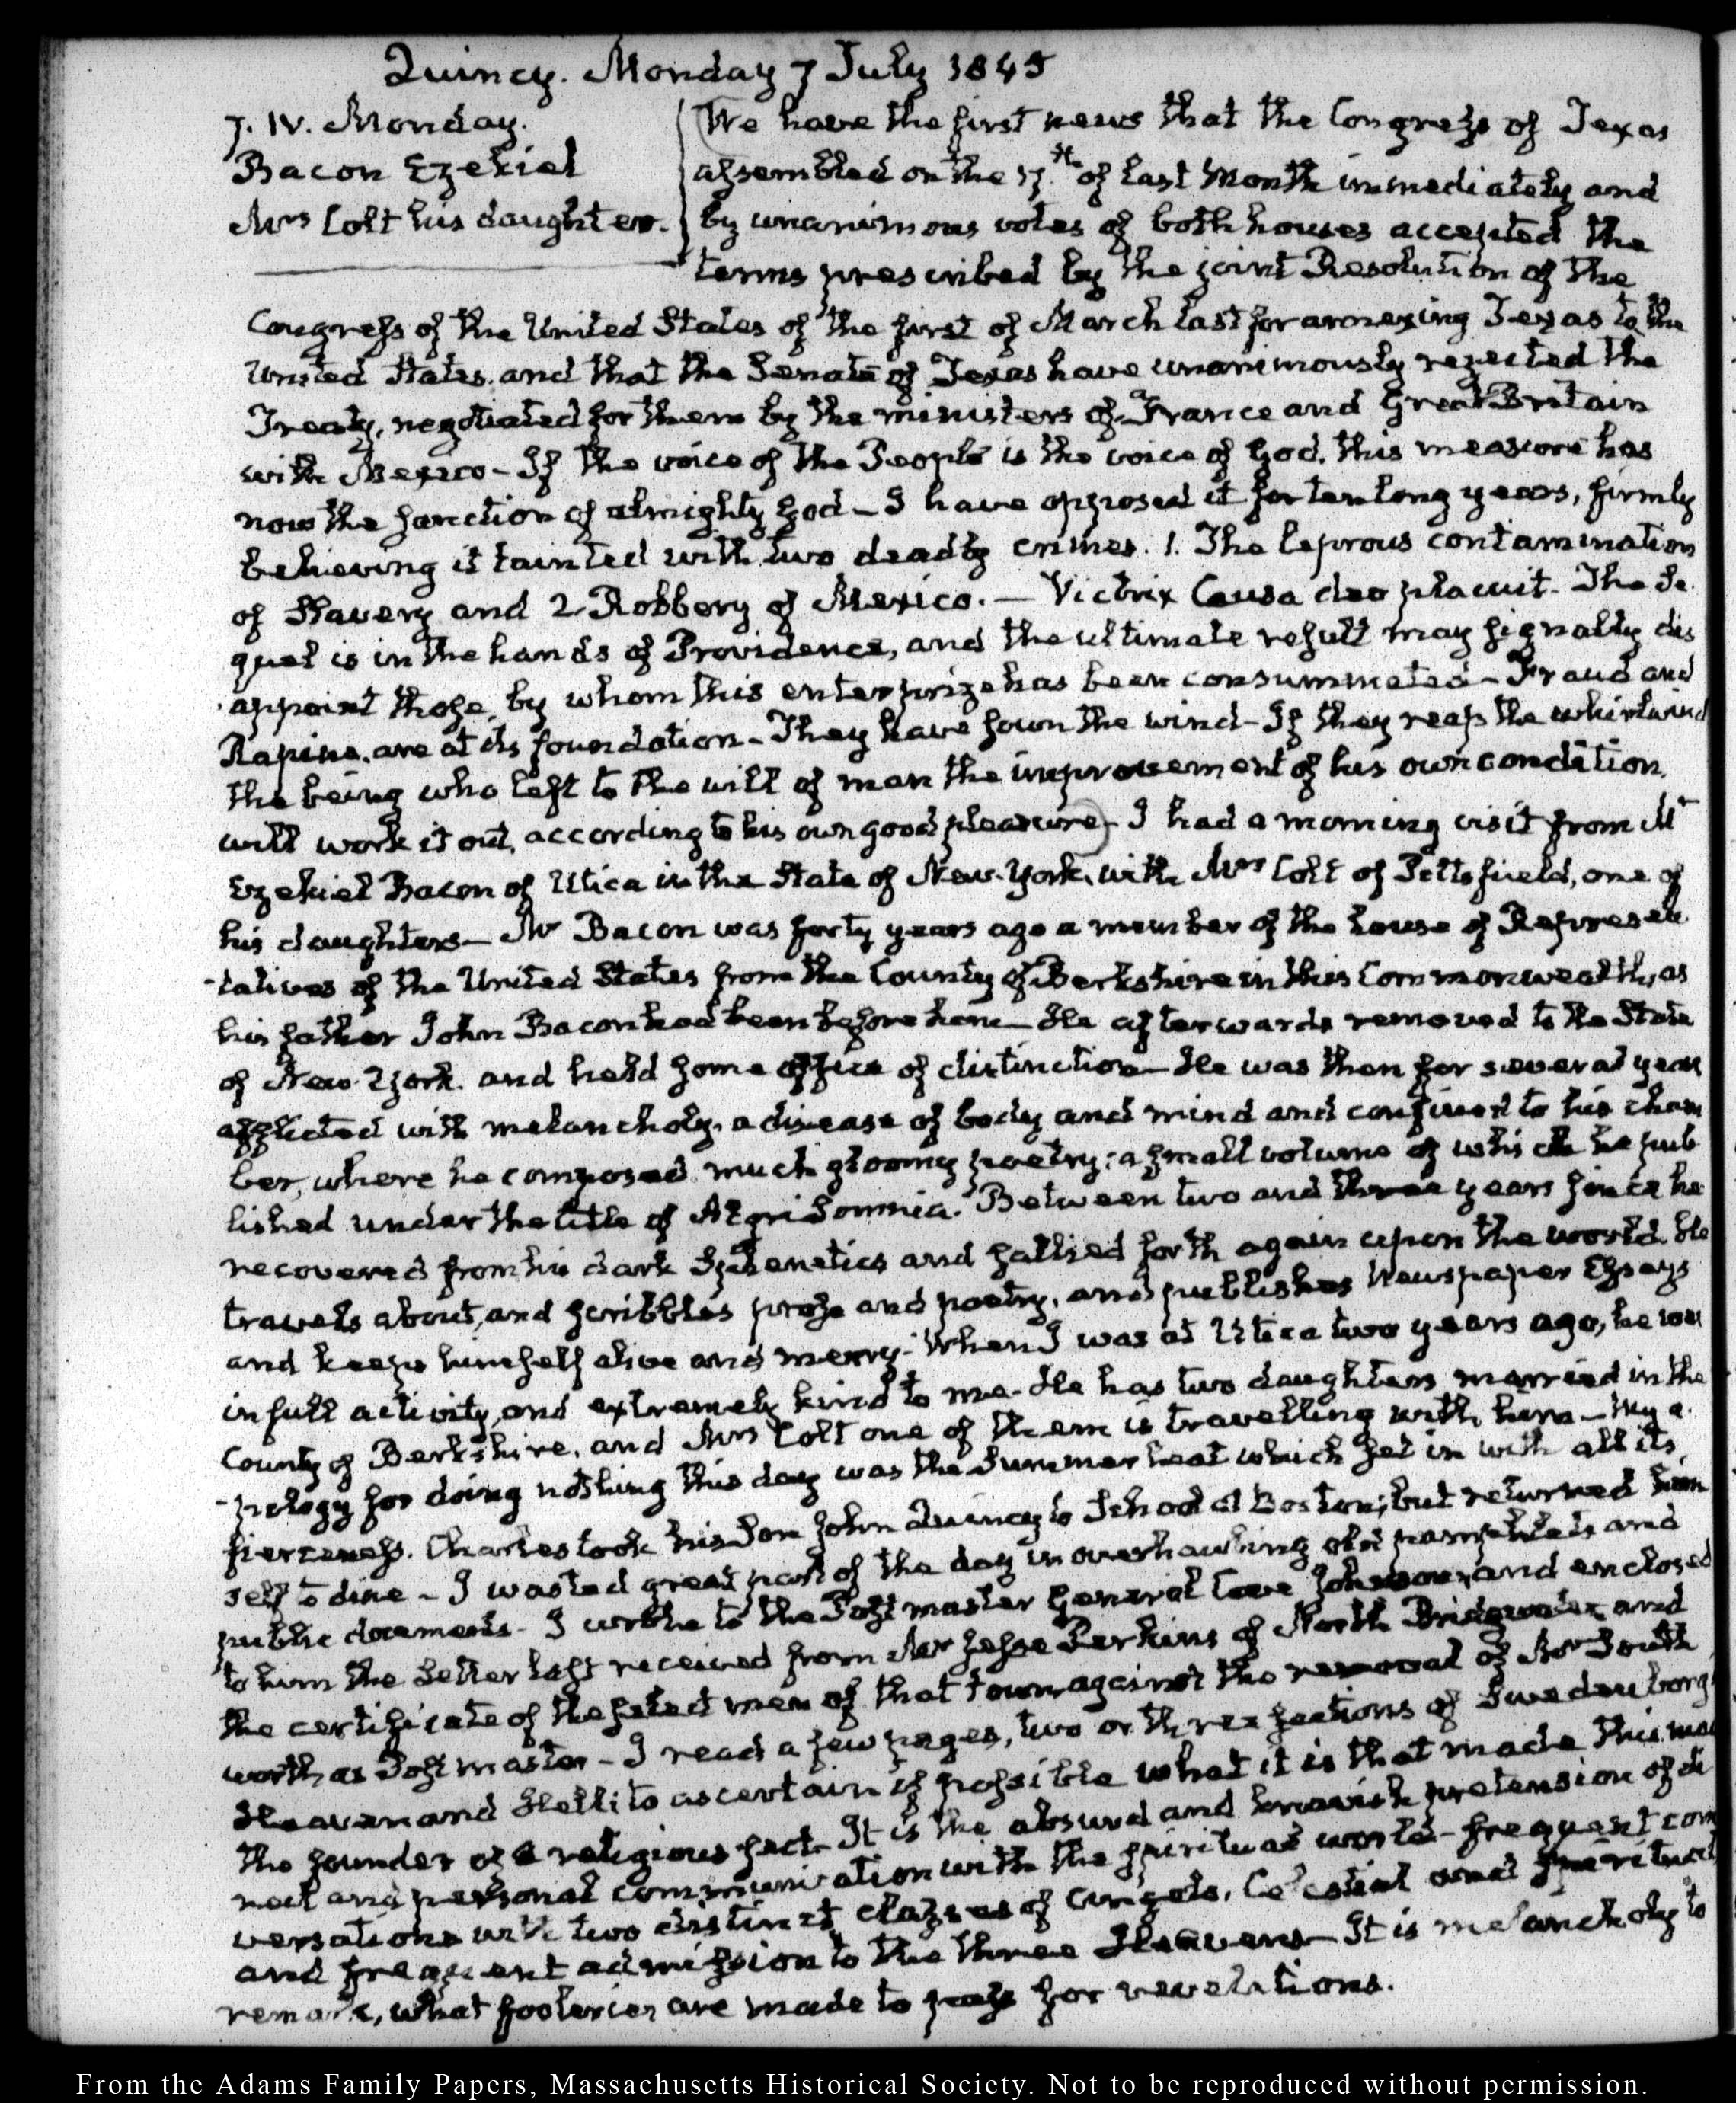 Quincy. Monday 7 July 1845
7. IV. Monday.
Bacon Ezekiel
Mrs Colt his daughter.
We have the first news that the Congress of Texas
assembled on the 17.th of last Month immediately and
by unanimous votes of both houses accepted the
terms prescribed by the joint Resolution of the
Congress of the United States of the first of March last for annexing Texas to the
United States, and that the Senate of Texas have unanimously rejected the
Treaty, negotiated for them by the ministers of France and Great Britain
with Mexico – If the voice of the People is the voice of God, this measure has
now the sanction of almighty God – I have opposed it for ten long years, firmly
believing it tainted with two deadly crimes. 1. The leprous contamination
of Slavery and 2 Robbery of Mexico. — Victrix Causa deo placuit. The Se
quel is in the hands of Providence, and the ultimate result may signally dis
appoint those, by whom this enterprize has been consummated – Fraud and
Rapine are at its foundation – They have sown the wind – If they reap the whirlwind
the being who left to the will of man the improvement of his own condition,
will work it out, according to his own good pleasure – I had a morning visit from Mr
Ezekiel Bacon of Utica in the State of New-York, with Mrs Colt of Pittsfield, one of
his daughters – Mr Bacon was forty years ago a member of the house of Represen
-tatives of the United States from the County of Berkshire in this Commonwealth, as
his father John Bacon had been before him – He afterwards removed to the State
of New-York. and held some office of distinction – He was then for several years
afflicted with melancholy, a disease of body and mind and confined to his cham
ber, where he composed much gloomy poetry; a small volume of which he pub
lished under the title of Ægri Somnia. Between two and three years since he
recovered from his dark and sallied forth again upon the world. He
travels about, and scribbles prose and poetry, and publishes Newspaper Essays
and keeps himself alive and merry. When I was at Utica two years ago, he was
in full activity, and extremely kind to me. He has two daughters married in the
County of Berkshire, and Mrs Colt one of them is travelling with him – My a
-pology for doing nothing this day was the Summer heat which set in with all its
fierceness. Charles took his Son John Quincy to School at Boston; but returned him
self to dine – I wasted great part of the day in overhauling old pamphlets and
public documents – I wrote to the Postmaster General Cave Johnson, and enclosed
to him the Letter last received from Mr Jesse Perkins of North Bridgewater and
the certificate of the select men of that town against the removal of Mr South
worth as Postmaster – I read a few pages, two or three sections of Swedenborg's
Heaven and Hell; to ascertain if possible what it is that made this man
the founder of a religious sect – It is the absurd and knavish pretension of di
rect and personal communication with the spiritual world – frequent con
versations with two distinct classes of angels, Celestial and Spiritual
and frequent admission to the three Heavens – It is melancholy to
remark, what fooleries are made to pass for revelations.
From the Adams Family Papers, Massachusetts Historical Society. Not to be reproduced without permission.